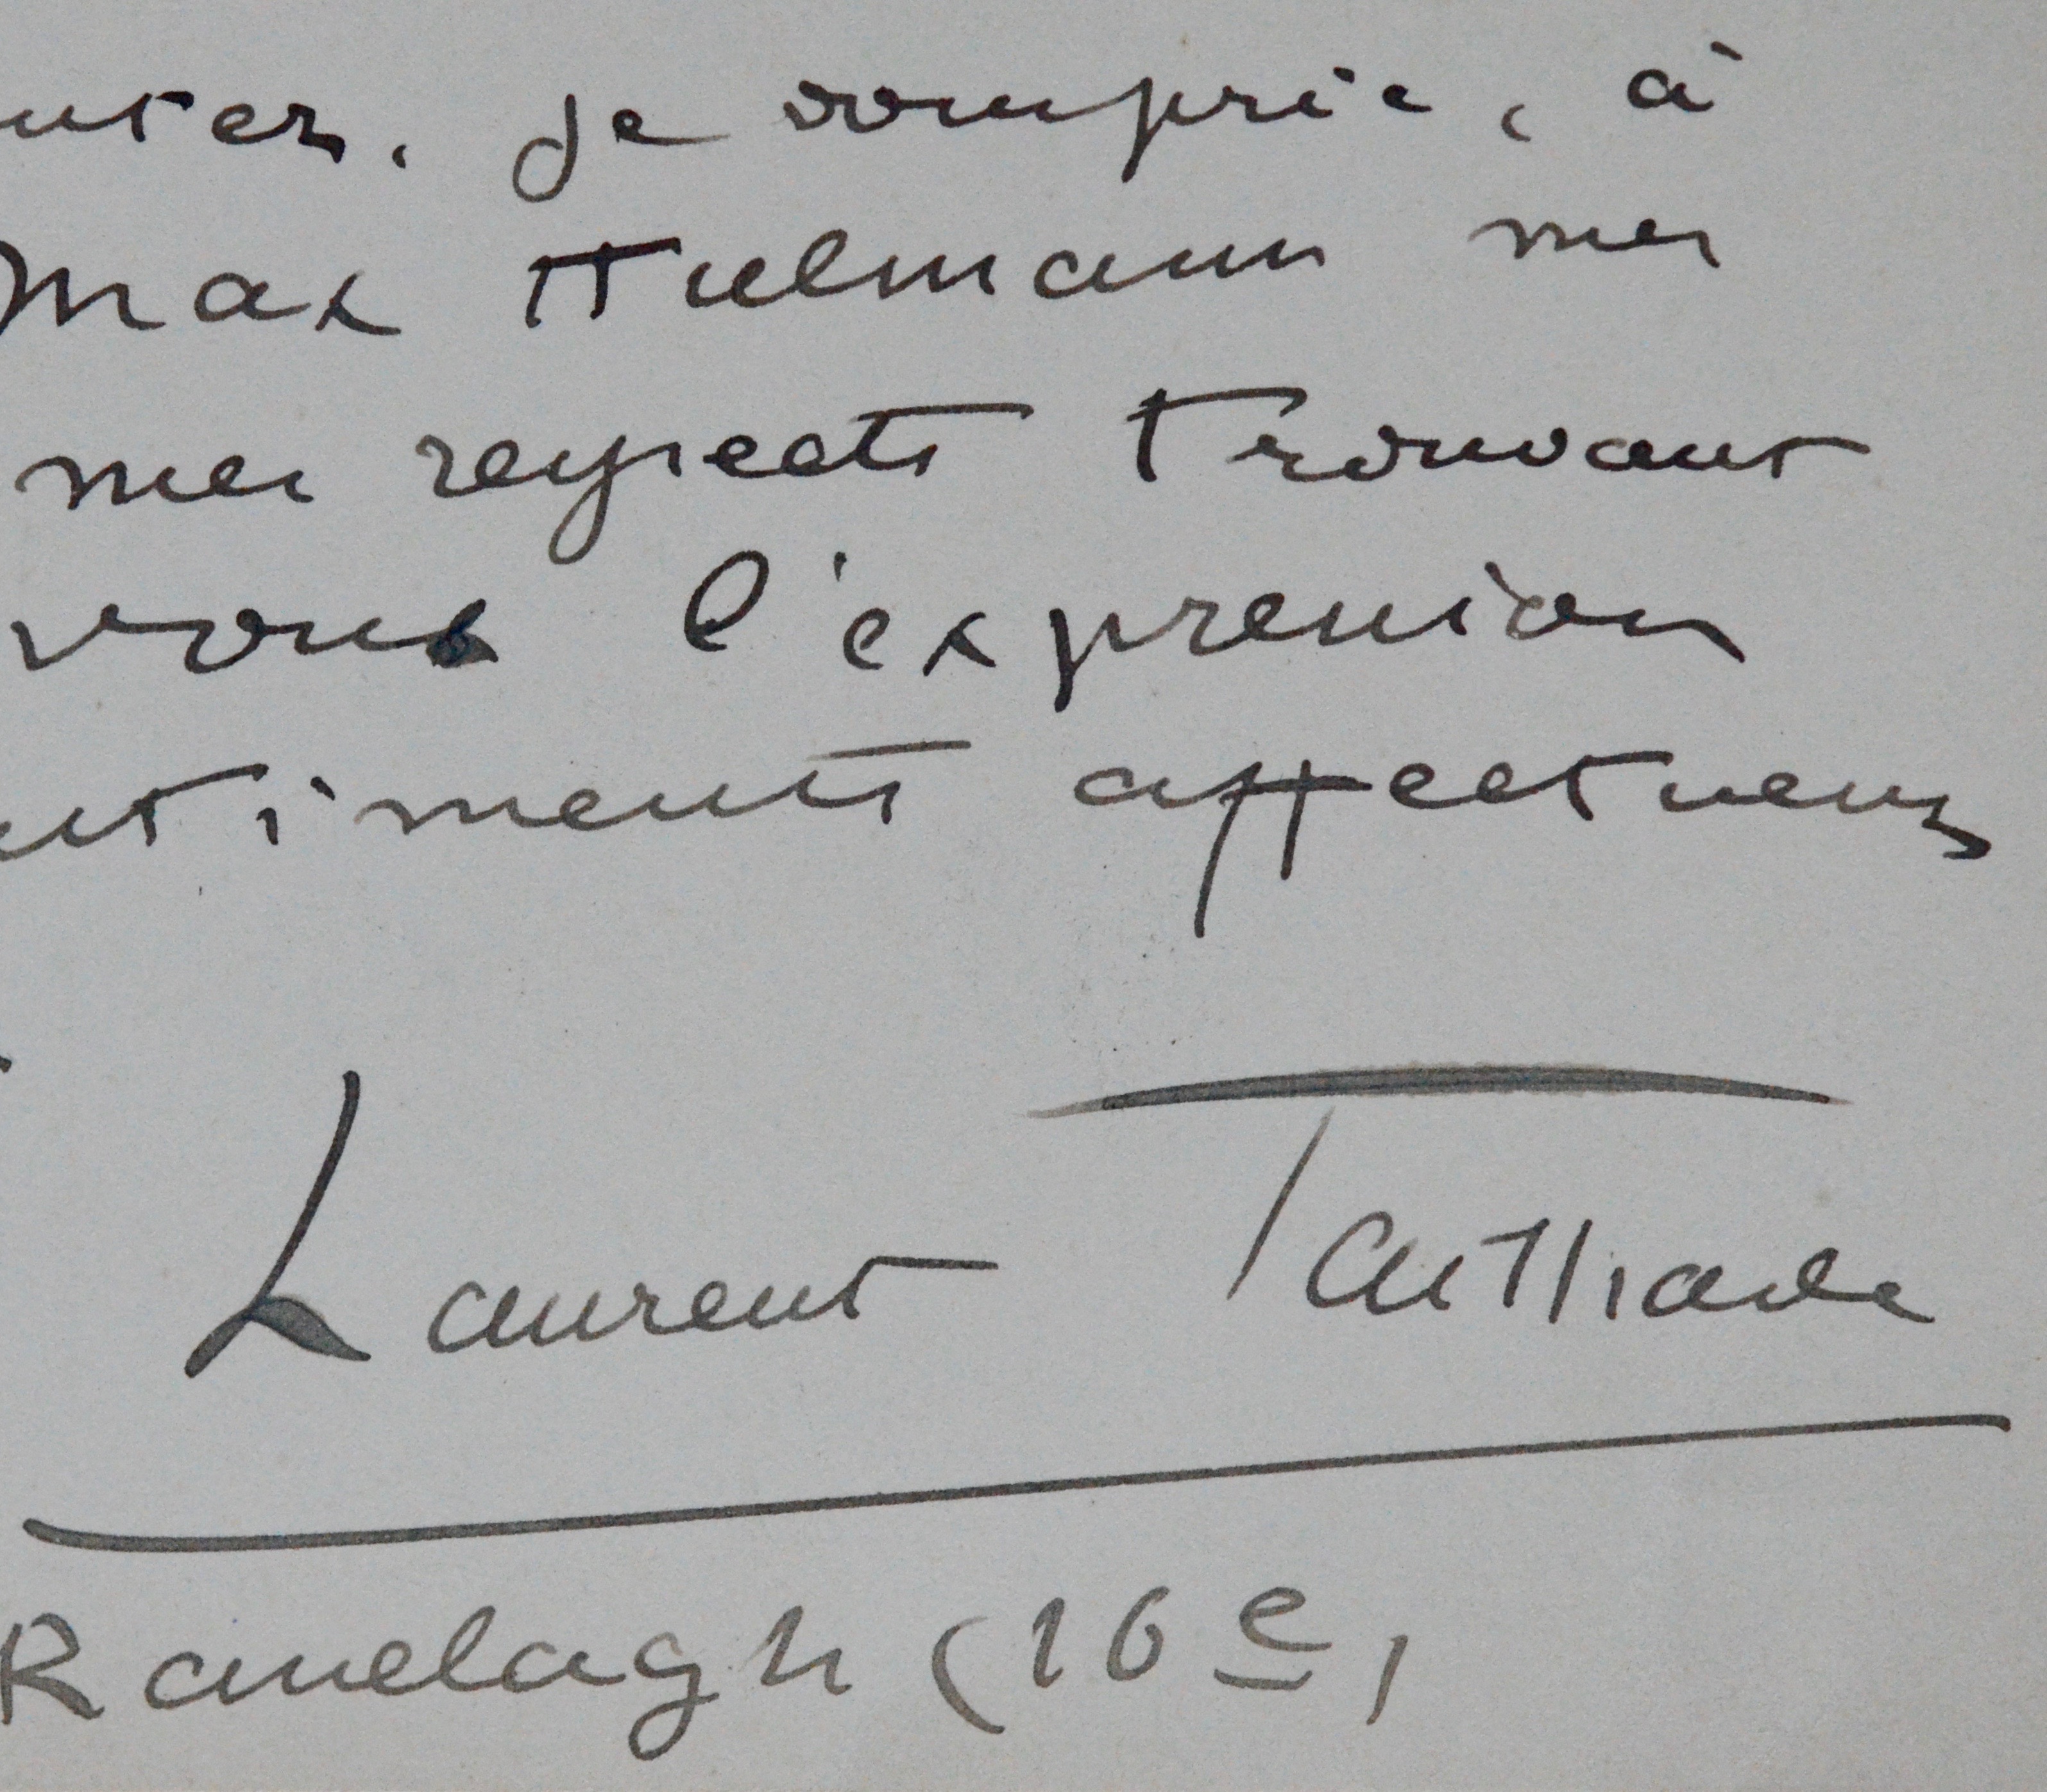 je vous prie, à
Max Hulmann mes
mes respects trouvant
vous l'expression
timents affectueux
Laurent Tailhade
Ranelagh (16e)